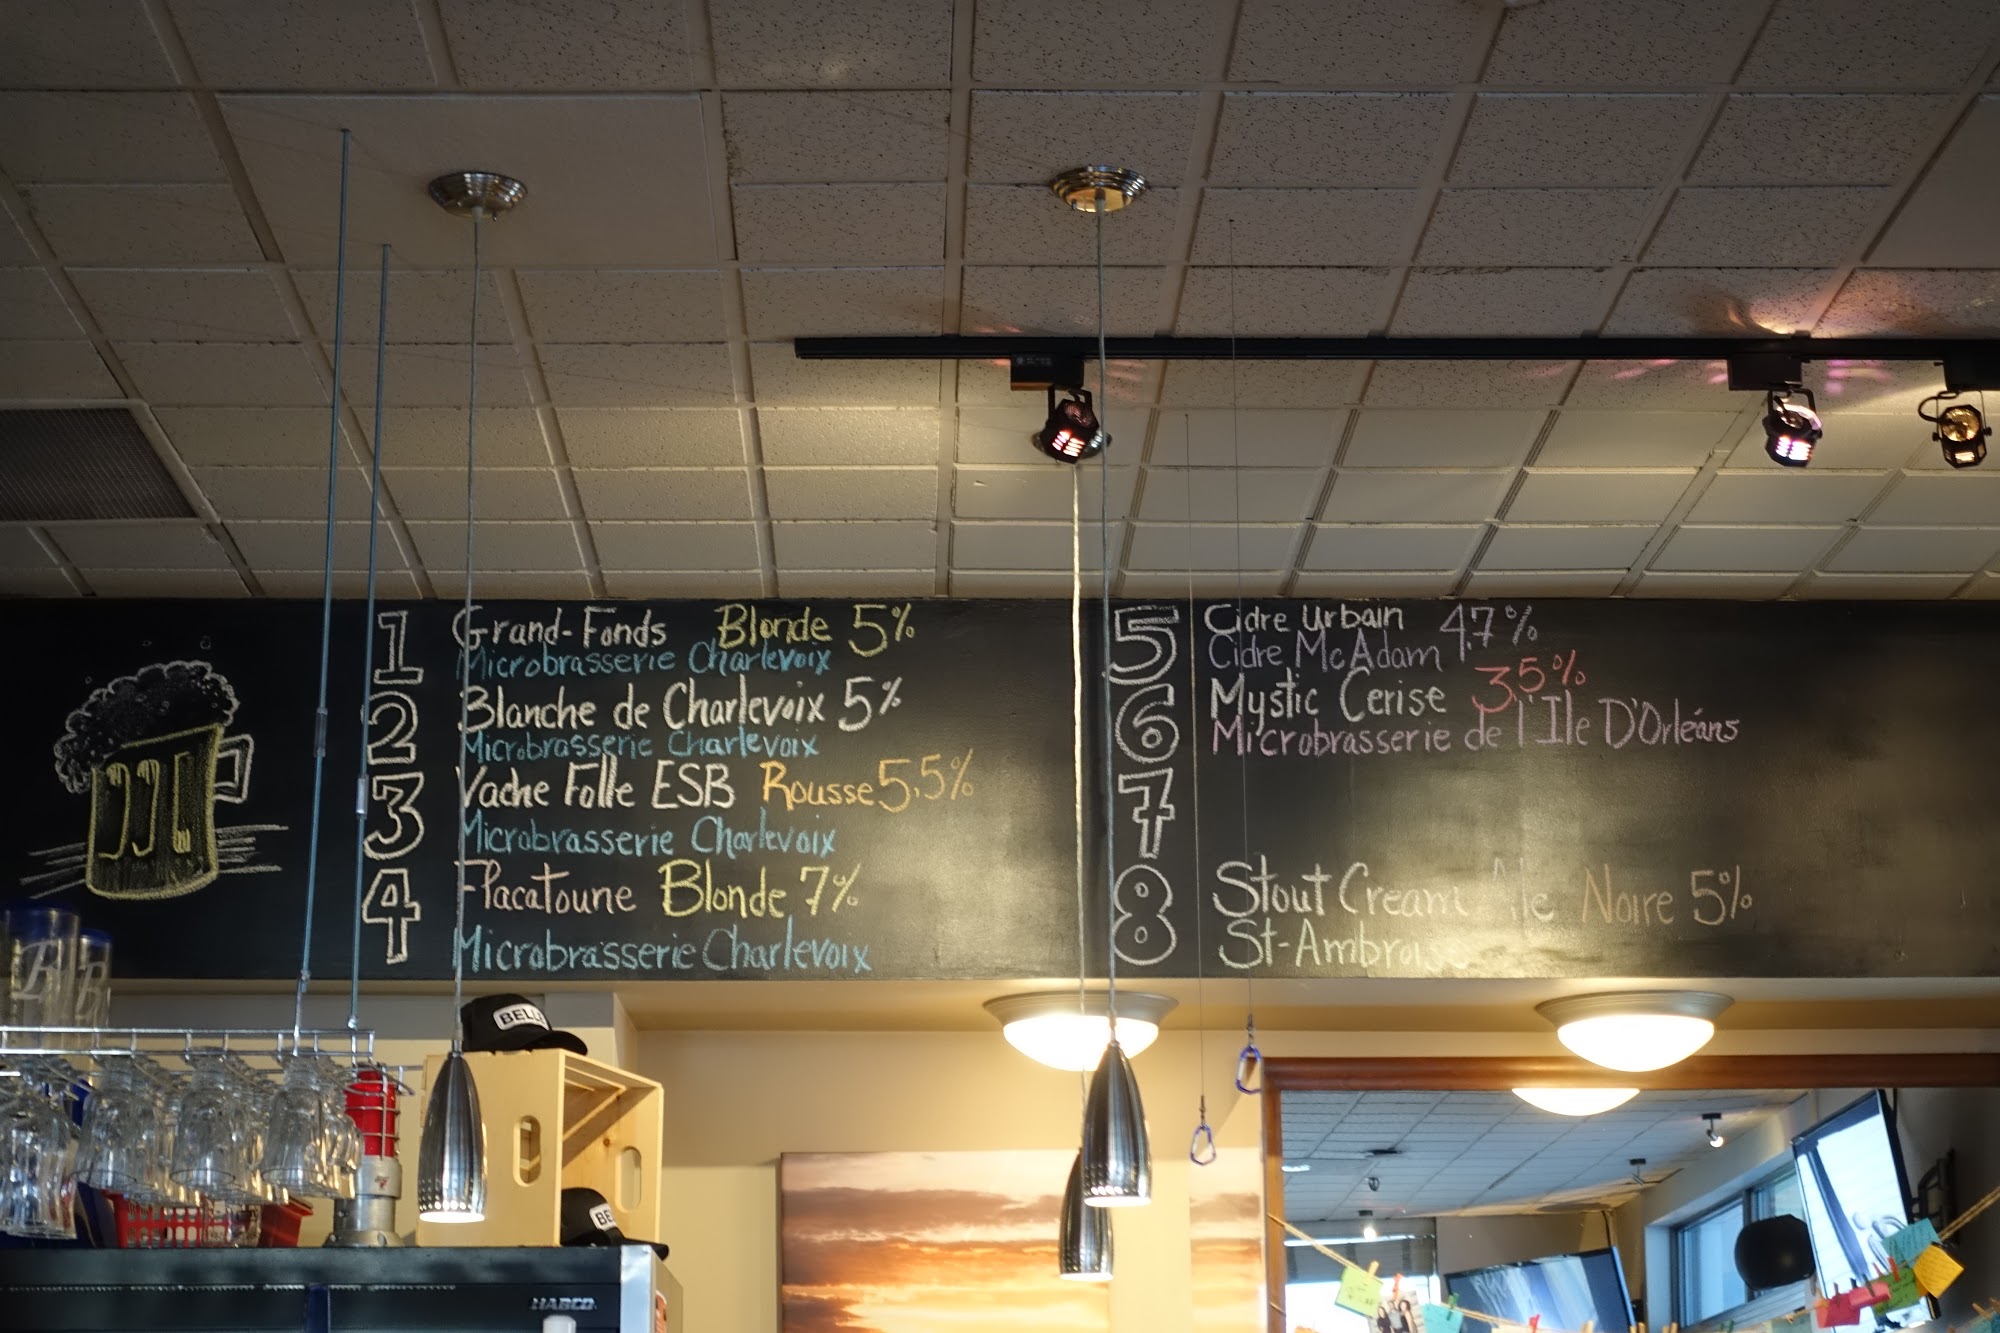 1 Grand-Fonds Blonde 5%
Microbrasserie Charlevoix
2 Blanche de Charlevoix 5%
Microbrasserie Charlevoix
3 Vache Folle ESB Rousse 5,5%
Microbrasserie Charlevoix
4 Flacatoune Blonde 7%
Microbrasserie Charlevoix
5 Cidre Urbain 4,7%
Cidre McAdam
6 Mystic Cerise 3,5%
Microbrasserie de l'Ile D'Orléans
7
8 Stout Cream Ale Noire 5%
St-Ambroise
BELLE
HABCO